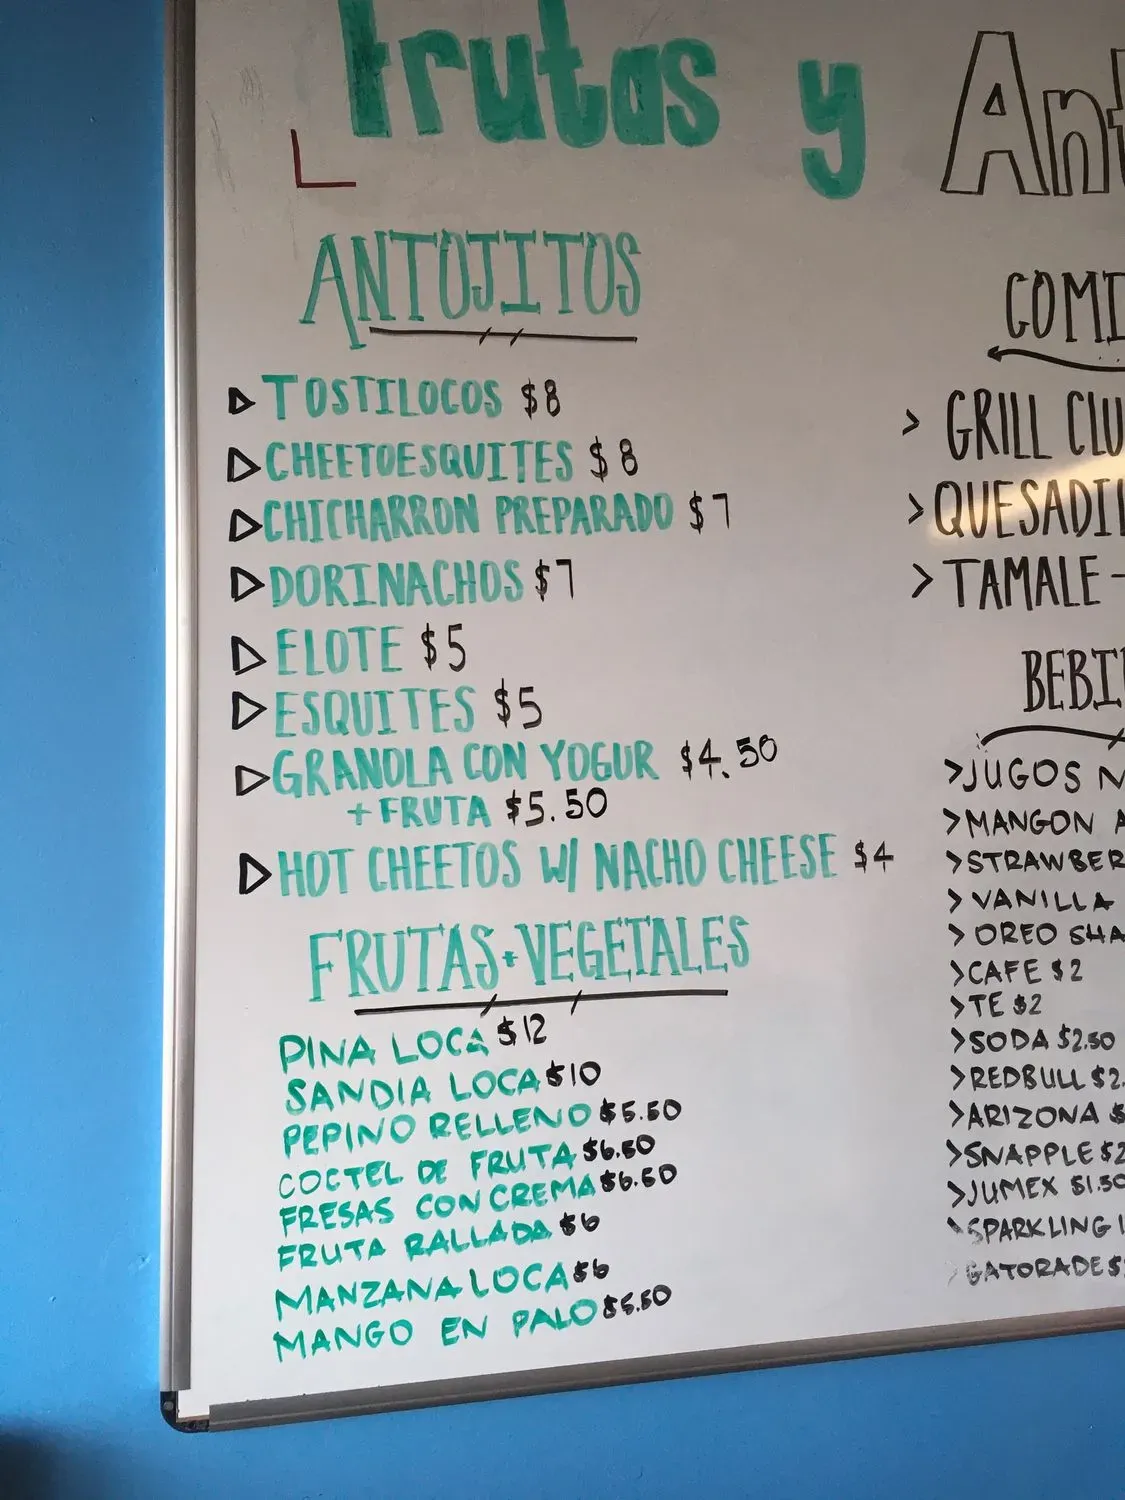 Frutas y Ant
ANTOJITOS
TOSTILOCOS $8
CHEETOESQUITES $8
CHICHARRON PREPARADO $7
DORINACHOS $7
ELOTE $5
ESQUITES $5
GRANOLA CON YOGUR $4.50
+ FRUTA $5.50
HOT CHEETOS W/ NACHO CHEESE $4
FRUTAS + VEGETALES
PINA LOCA $12
SANDIA LOCA $10
PEPINO RELLENO $5.50
COCTEL DE FRUTA $6.50
FRESAS CON CREMA $6.50
FRUTA RALLADA $6
MANZANA LOCA $6
MANGO EN PALO $5.50
COMI
> GRILL CLU
> QUESADIL
> TAMALE -
BEBI
> JUGOS N
> MANGON A
> STRAWBER
> VANILLA
> OREO SHA
> CAFE $2
> TE $2
> SODA $2.50
> REDBULL $2.
> ARIZONA $
> SNAPPLE $2
> JUMEX $1.50
> SPARKLING
> GATORADE $